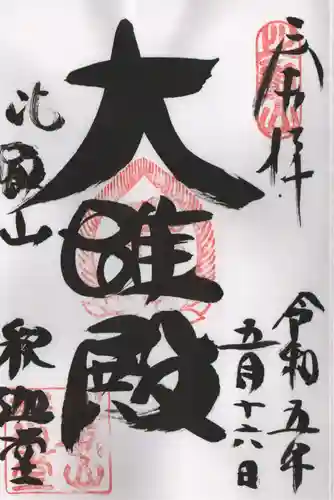 奉拝
令和五年
五月十六日
大雄殿
比叡山
釈迦堂